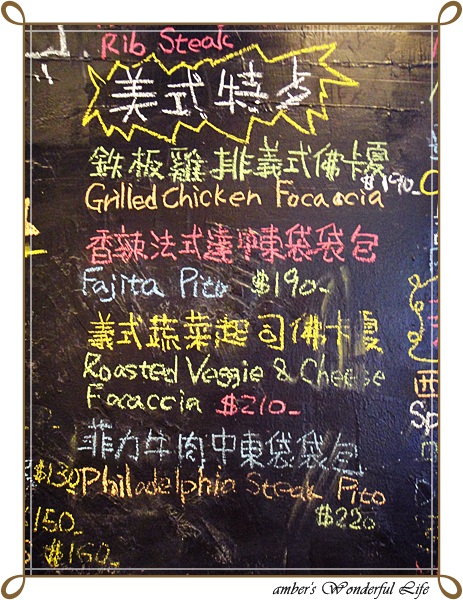 Rib Steak
美式特点
鉄板雞排義式佛卡夏
$190-
Grilled Chicken Focaccia
香辣法式達中東袋袋包
Fajita Pita $190-
義式蔬菜起司佛卡夏
Roasted Veggie & Cheese
Focaccia $210-
菲力牛肉中東袋袋包
$130
Philadelphia Steak Pita
150-
$220
$150-
Sp
amber's Wonderful Life